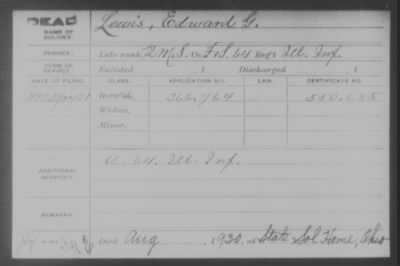 DEAD
NAME OF SOLDIER: Lewis, Edward G.
SERVICE: Late rank 2 M.S. Co. F & S. 64 Reg't Ill. Inf.
TERM OF SERVICE: Enlisted , 1 Discharged , 1
DATE OF FILING. CLASS. APPLICATION NO. LAW. CERTIFICATE NO.
Invalid, 366.764 550.055
Widow,
Minor,
ADDITIONAL SERVICES: A. 64. Ill. Inf.
REMARKS:
Died Aug , 1920, at State Sol Home, Ohio